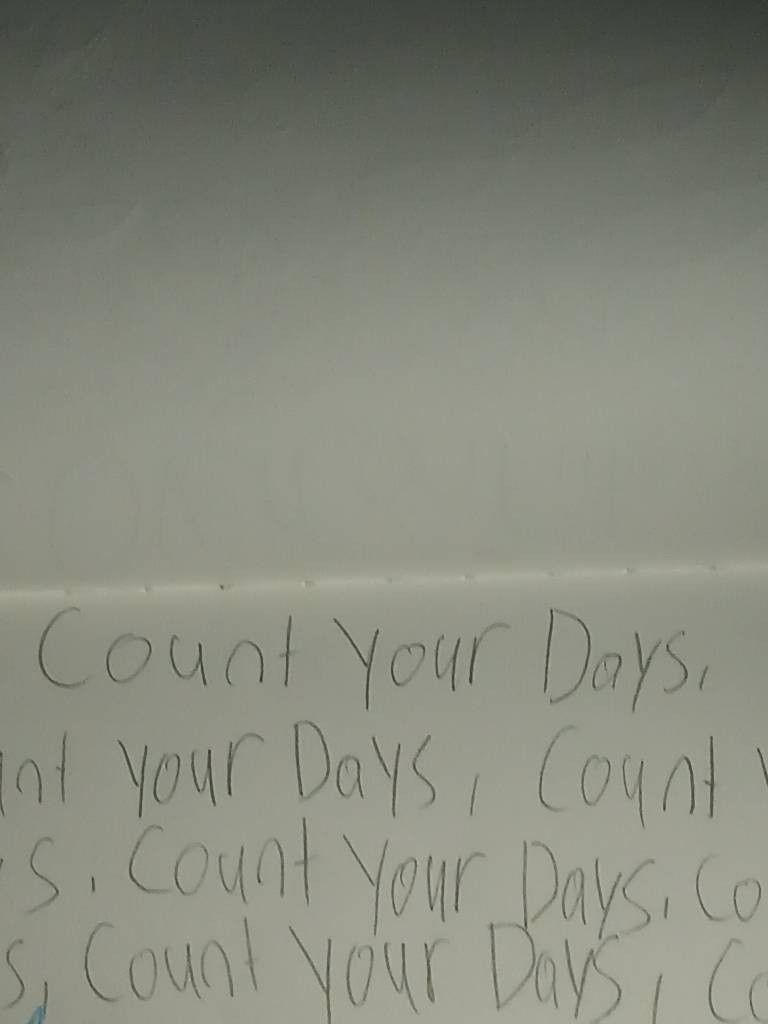 Count Your Days,
nt Your Days, Count Y
s. Count Your Days, Co
s, Count Your Days, Co